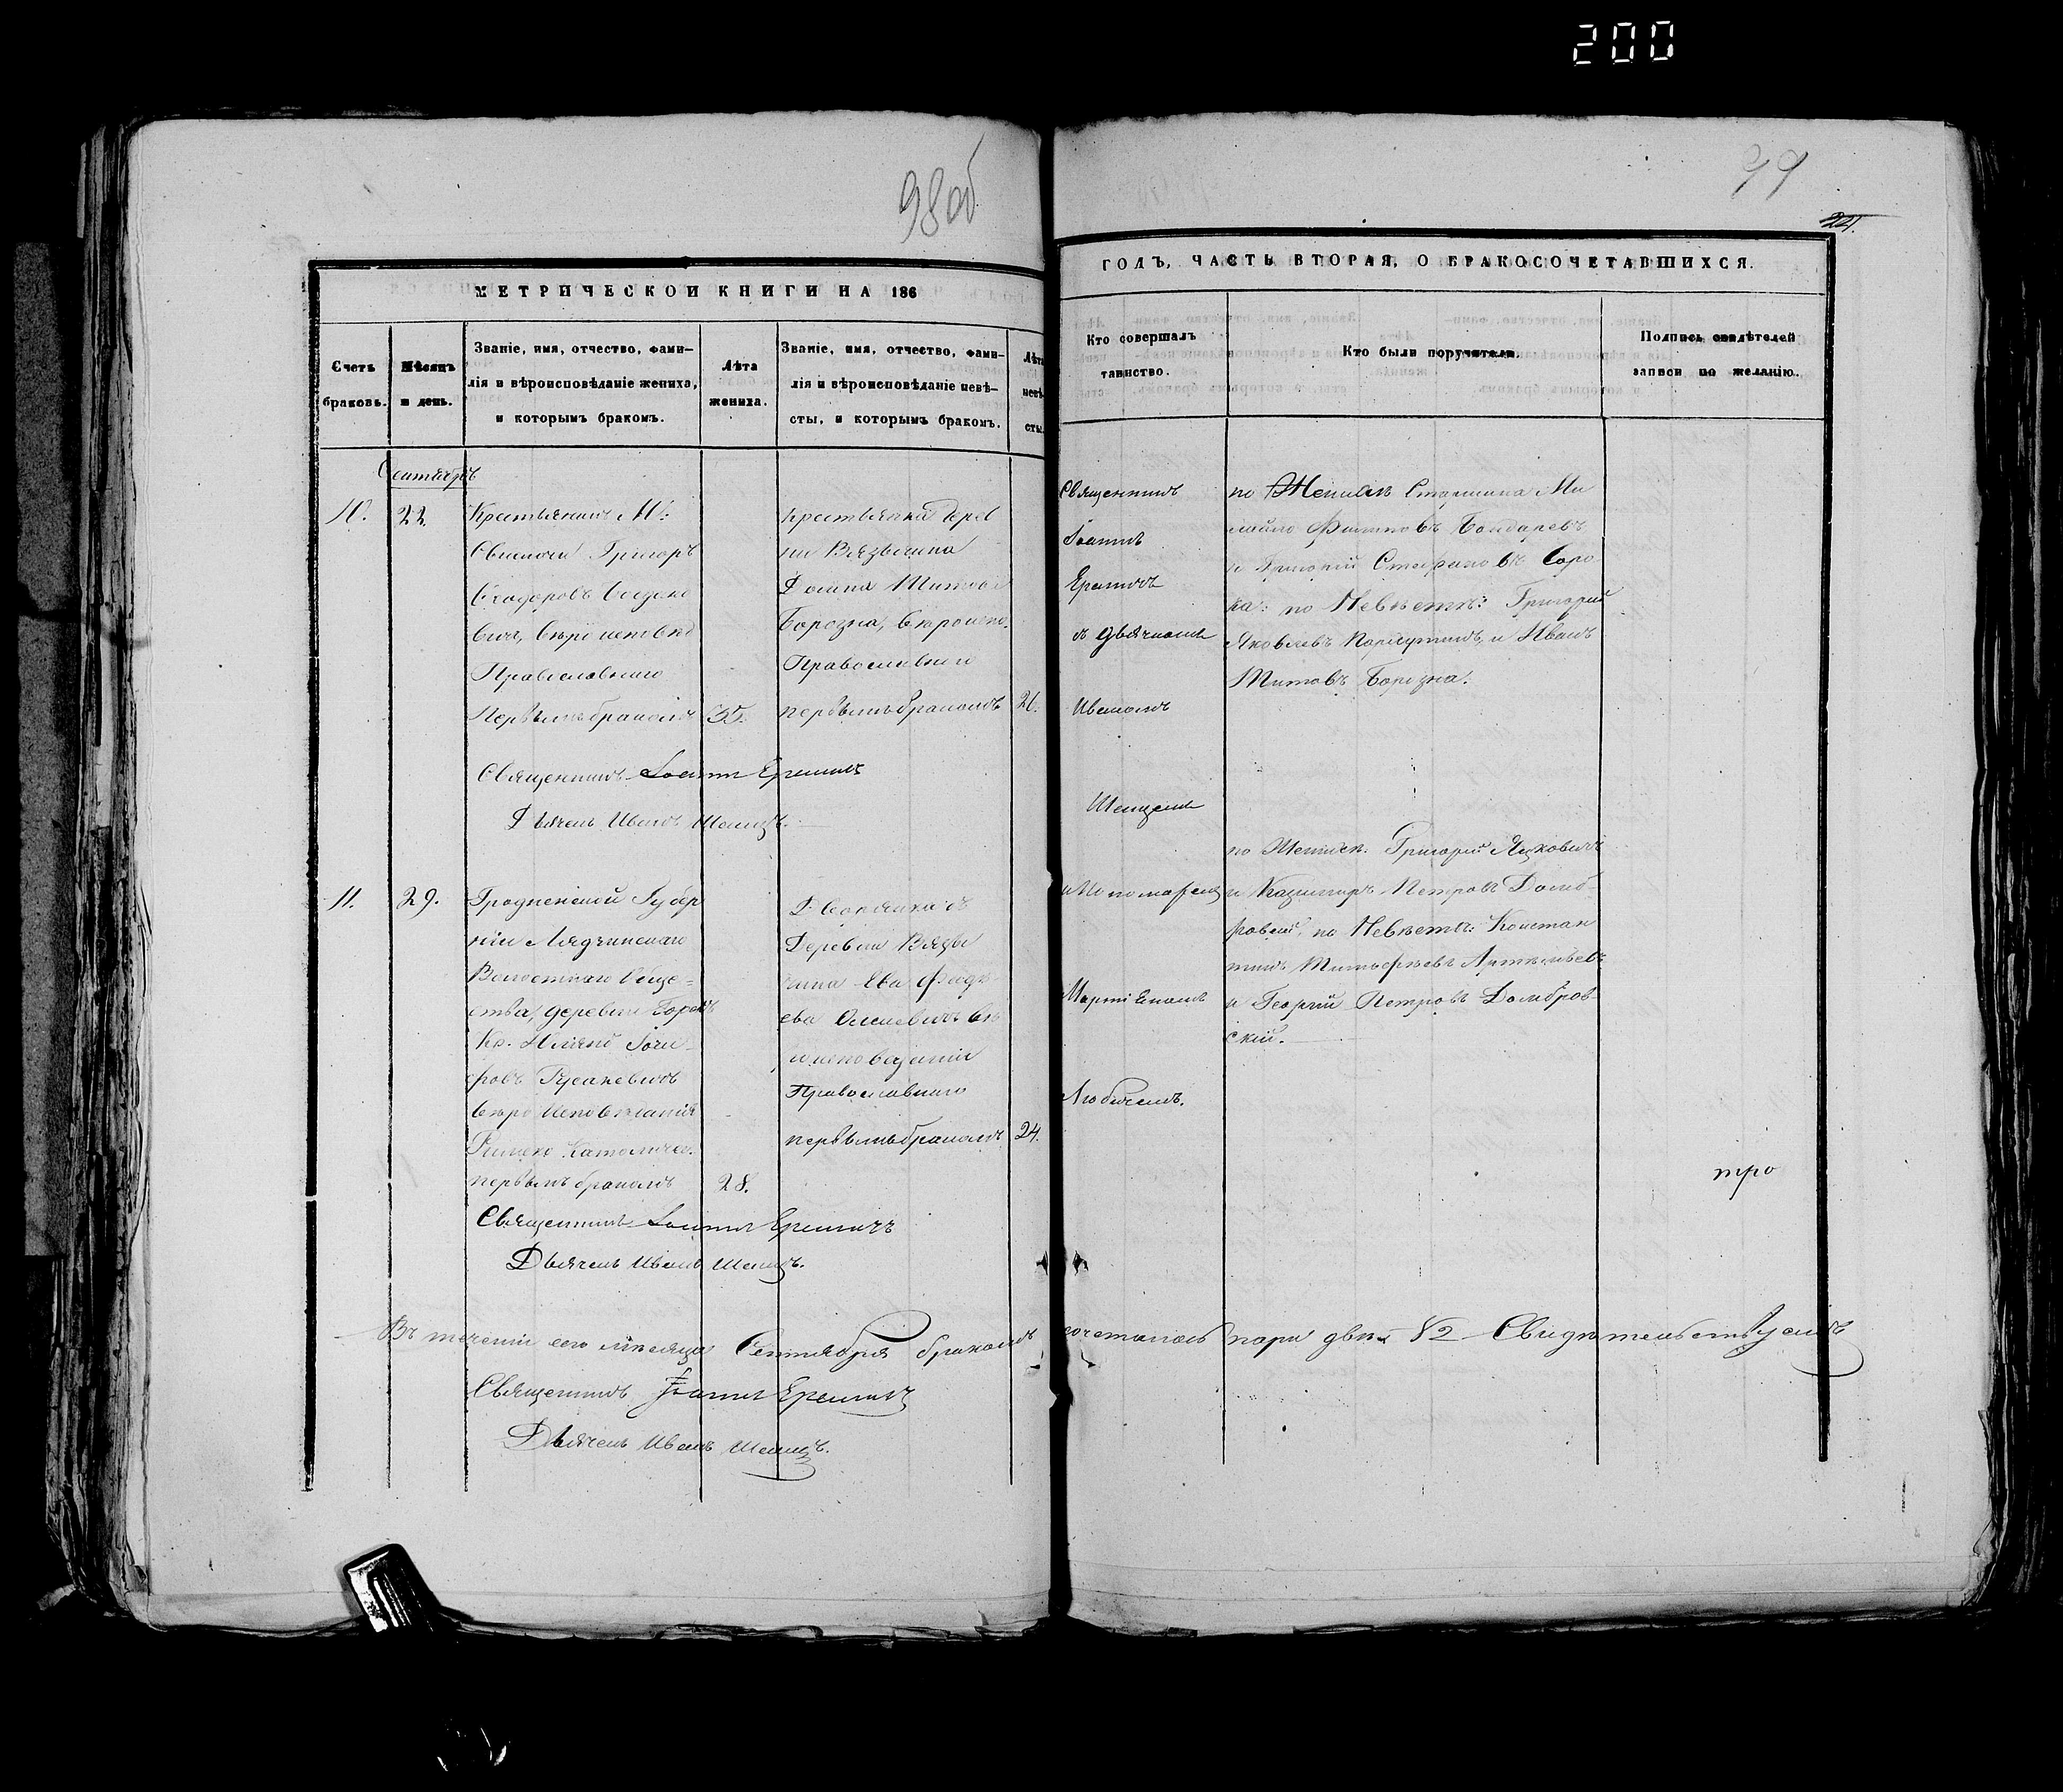 200
98об
99
24.
МЕТРИЧЕСКОЙ КНИГИ НА 186
ГОДЪ, ЧАСТЬ ВТОРАЯ, О БРАКОСОЧЕТАВШИХСЯ.
Счетъ
браковъ.
Мѣсяцъ
и день.
Званіе, имя, отчество, фами-
лія и вѣроисповѣданіе жениха,
и которымъ бракомъ.
Лѣта
жениха.
Званіе, имя, отчество, фами-
лія и вѣроисповѣданіе невѣ-
сты, и которымъ бракомъ.
Лѣта
невѣ-
сты.
Кто совершалъ
таинство.
Кто были поручители.
Подпись свидѣтелей
записи по желанію.
Сентябрь
10.
22.
Крестьянинъ М:
Свислочи Григоръ
Ѳеодоровъ
вичъ, вѣроисповѣд
Православнаго
Первымъ бракомъ
35.
Крестьянка дерев
ни Вязычина
Домна Титова
Борозна, вѣроиспо.
Православнаго
первымъ бракомъ
26.
Священникъ
Іоаннъ
Еремичъ
съ дьячкомъ
Иваномъ
Шемцем
по Женихѣ Старшина Ми
хайло Филиповъ Бондаревъ
и Григорій Стефановъ Соро
ка: по Невѣстѣ: Григорій
Яковлевъ и Иванъ
Титовъ Борозна.
Священникъ Іоаннъ Еремичъ
Дьячекъ Иванъ
11.
29.
Гродненской Губер
ніи Лядчинскаго
Волостнаго Обще-
ства, деревни
Кр.
фовъ Русакевичъ
вѣроисповѣданія
Римско Католичес.
первымъ бракомъ
28.
Дворянка съ
Деревни Вязы
чина Ева Фад
ева вѣ
исповеданія
Православнаго
первымъ бракомъ
24.
и Пономаремъ
Любичемъ.
по Женихѣ: Григорій Яцковичъ
и Казимиръ Петровъ Домб-
ровскій, по Невѣстѣ: Констан
тинъ Тимофѣевъ Артемьевъ
и Георгій Петровъ Домбров-
скій.
тро
Священникъ Іоаннъ Еремичъ
Дьячекъ Иванъ
Въ теченіи сего мѣсяца Сентября бракомъ сочеталось пари двѣ №2 Свидѣтельствуемъ
Священникъ Іоаннъ Еремичъ
Дьячекъ Иванъ